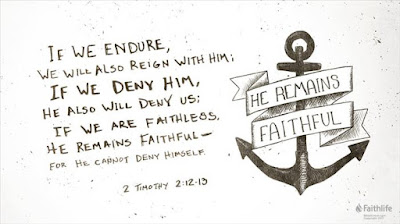 IF WE ENDURE,
WE WILL ALSO REIGN WITH HIM;
IF WE DENY HIM,
HE ALSO WILL DENY US;
IF WE ARE FAITHLESS,
HE REMAINS FAITHFUL—
FOR HE CANNOT DENY HIMSELF.
2 TIMOTHY 2:12-13
HE REMAINS
FAITHFUL
Faithlife